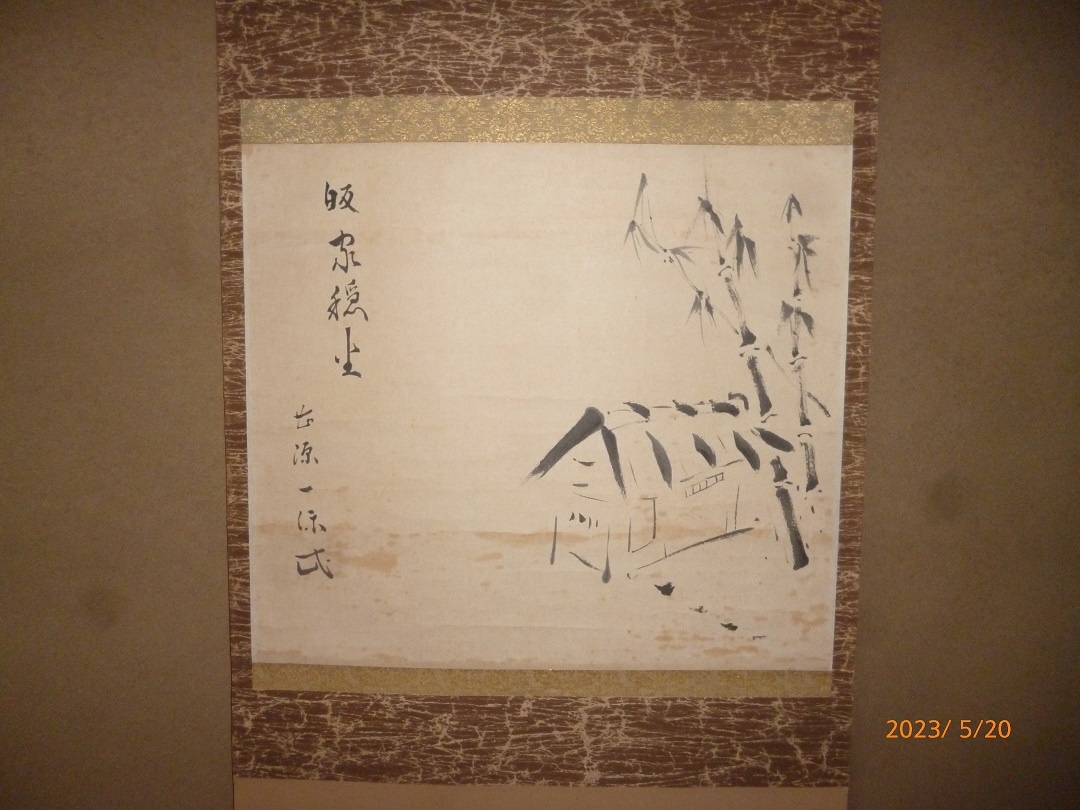 皈家穏坐
古源一派式
2023/ 5/20